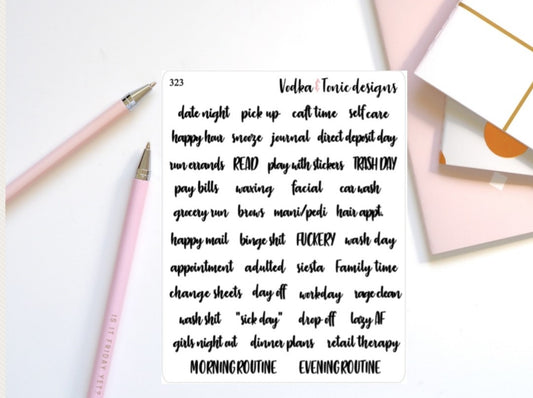 323 Vodka & Tonic designs
date night pick up caft time self care
happy hour snooze journal direct deposit day
run errands READ play with stickers TRASH DAY
pay bills waxing facial car wash
grocery run brows mani/pedi hair appt.
happy mail binge shit FUCKERY wash day
appointment adulted siesta Family time
change sheets day off workday rage clean
wash shit "sick day" drop off lazy AF
girls night out dinner plans retail therapy
MORNING ROUTINE EVENING ROUTINE
IS IT FRIDAY YET?